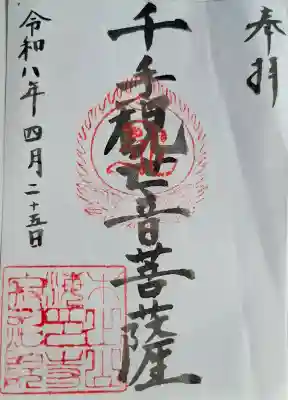 奉拝
千手観世音菩薩
令和八年四月二十五日